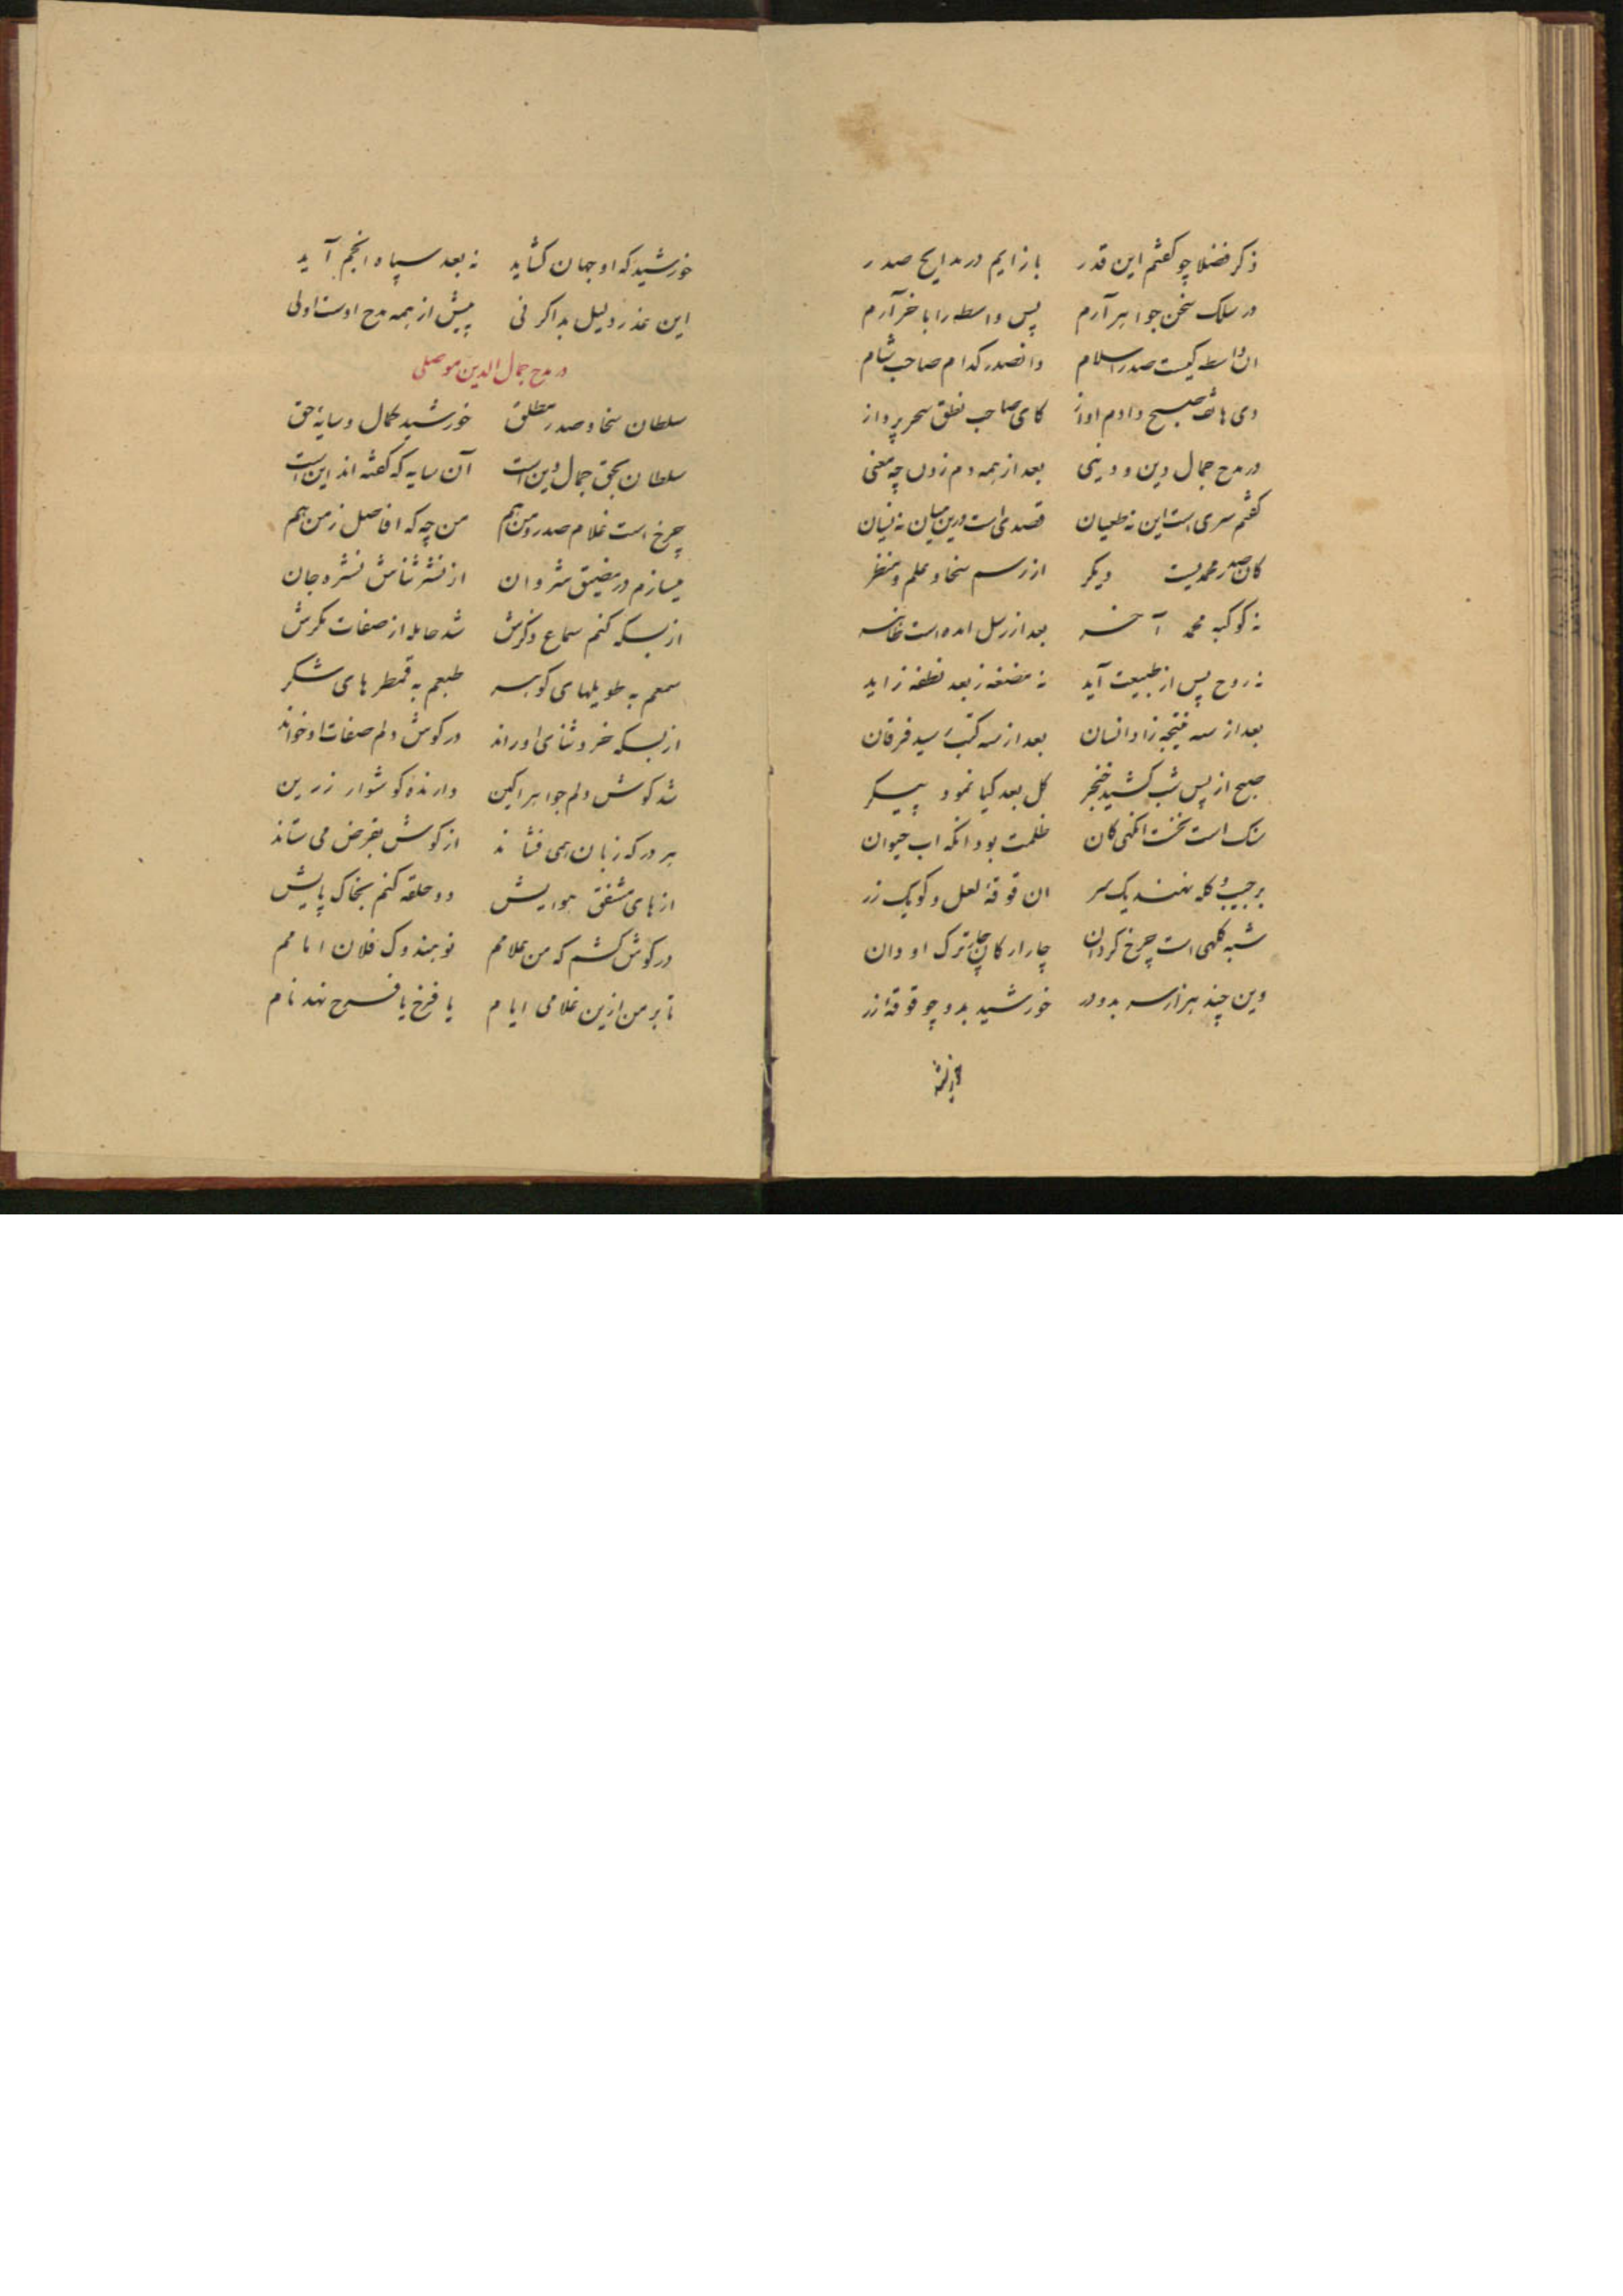 ذکر فضلا چو کفتم این قدر بازایم در مدایح صدر
در سلک سخن جواهر آرم پس واسطه را باخر آرم
ان واسطه کیست صدر اسلام وانصدر کدام صاحب شام
دی هاتف صبح دادم اواز کای صاحب نطق سحر پرداز
در مدح جمال دین و دینی بعد از همه دم زدن چه معنی
کفتم سری است این نه طغیان قصدی است درین میان نه نسیان
کان صدر محمدیست دیکر از رسم سخا و علم و منظر
نه کوکبه محمد آخر بعد از رسل امده است ظاهر
نه روح پس از طبیعت آید نه مضغه ز بعد نطفه زاید
بعد از سه نتیجه زاد انسان بعد از سه کتب رسید فرقان
صبح از پس شب کشید خنجر کل بعد کیا نمود پیکر
سنک است نخست انکهی کان ظلمت بود انکه اب حیوان
بر جیب و کله نهند یک سر ان قوقهٔ لعل و کویک زر
شبه کلهی است چرخ کردان چار ارکان چار ترک او دان
وین چند هزار سر بدو در خورشید بدو چو قوقهٔ زر
خورشید که او جهان کشاید نه بعد سپاه انجم آید
این عذر و دلیل بد اکر نی پیش از همه مدح اوست اولی
در مدح جمال الدین موصلی
سلطان سخا و صدر مطلق خورشید کمال و سایهٔ حق
سلطان بحق جمال دین است آن سایه که کفته اند این است
چرخ است غلام صدر و من هم من چه که افاضل زمن هم
میسازم در مضیق شروان از نشر ثناش نشرهٔ جان
از بسکه کنم سماع ذکرش شد حامله از صفات بکرش
سمعم به طویلهای کوهر طبعم به قمطرهای شکر
از بسکه خرد ثنای او راند در کوش دلم صفات او خواند
شد کوش دلم جواهر اکین دارندهٔ کوشوار زرین
هر در که زبان همی فشاند از کوش بقرض می ستاند
از های مشفق هوایش دو حلقه کنم بخاک پایش
در کوش کشم که من غلامم نو هندوک فلان امامم
تا بر من ازین غلامی ایام یا فرخ یا فرح نهد نام